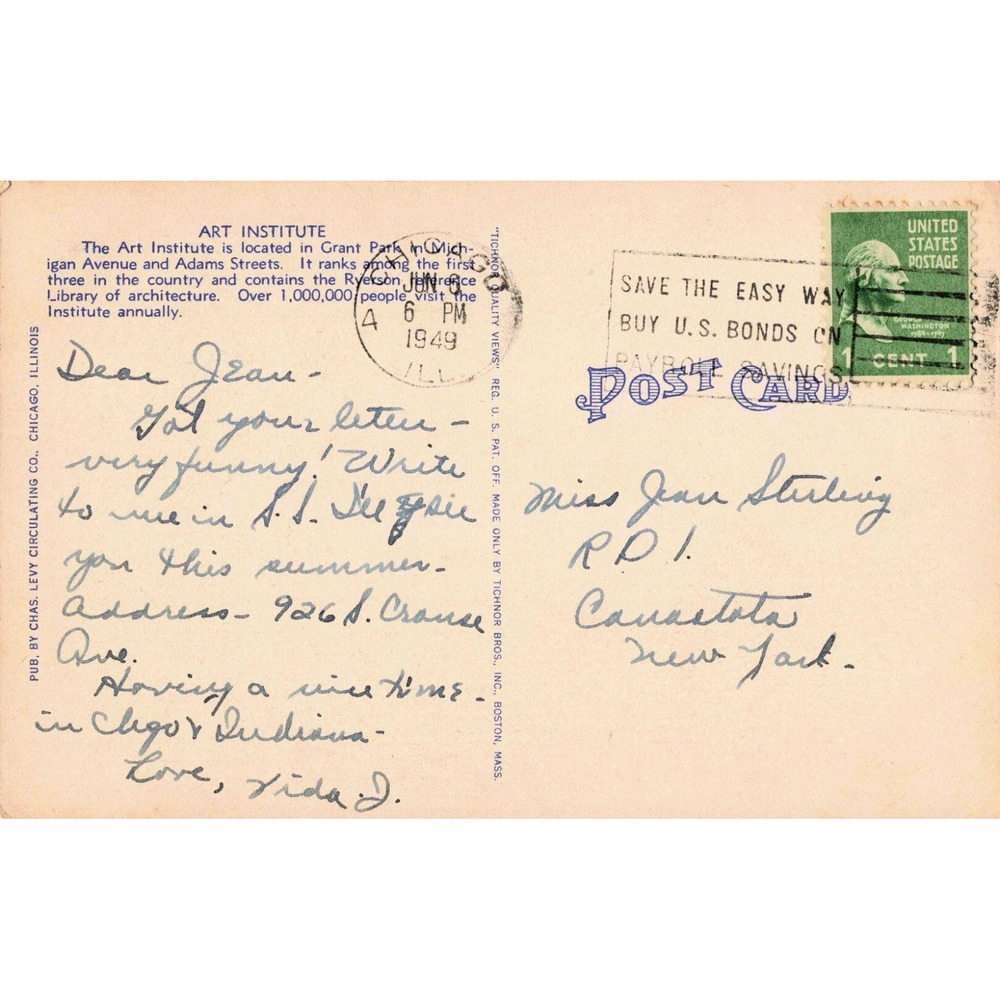 ART INSTITUTE
The Art Institute is located in Grant Park in Mich-
igan Avenue and Adams Streets. It ranks among the first
three in the country and contains the Ryerson Reference
Library of architecture. Over 1,000,000 people visit the
Institute annually.
CHICAGO
JUN 6
6 PM
1949
ILL
4
Dear Jean -
Got your letter -
very funny! Write
to me in S.S. I'll see
you this summer -
Address - 926 S. Crouse
Ave.
Having a nice time -
in Chgo & Indiana -
Love, Vida J.
PUB. BY CHAS. LEVY CIRCULATING CO., CHICAGO, ILLINOIS
"TICHNOR QUALITY VIEWS" REG. U. S. PAT. OFF. MADE ONLY BY TICHNOR BROS., INC., BOSTON, MASS.
SAVE THE EASY WAY
BUY U.S. BONDS ON
PAYROLL SAVINGS
UNITED
STATES
POSTAGE
GEORGE
WASHINGTON
1789-1797
1 CENT 1
POST CARD
Miss Jean Sterling
R D 1.
Canastota
New York.